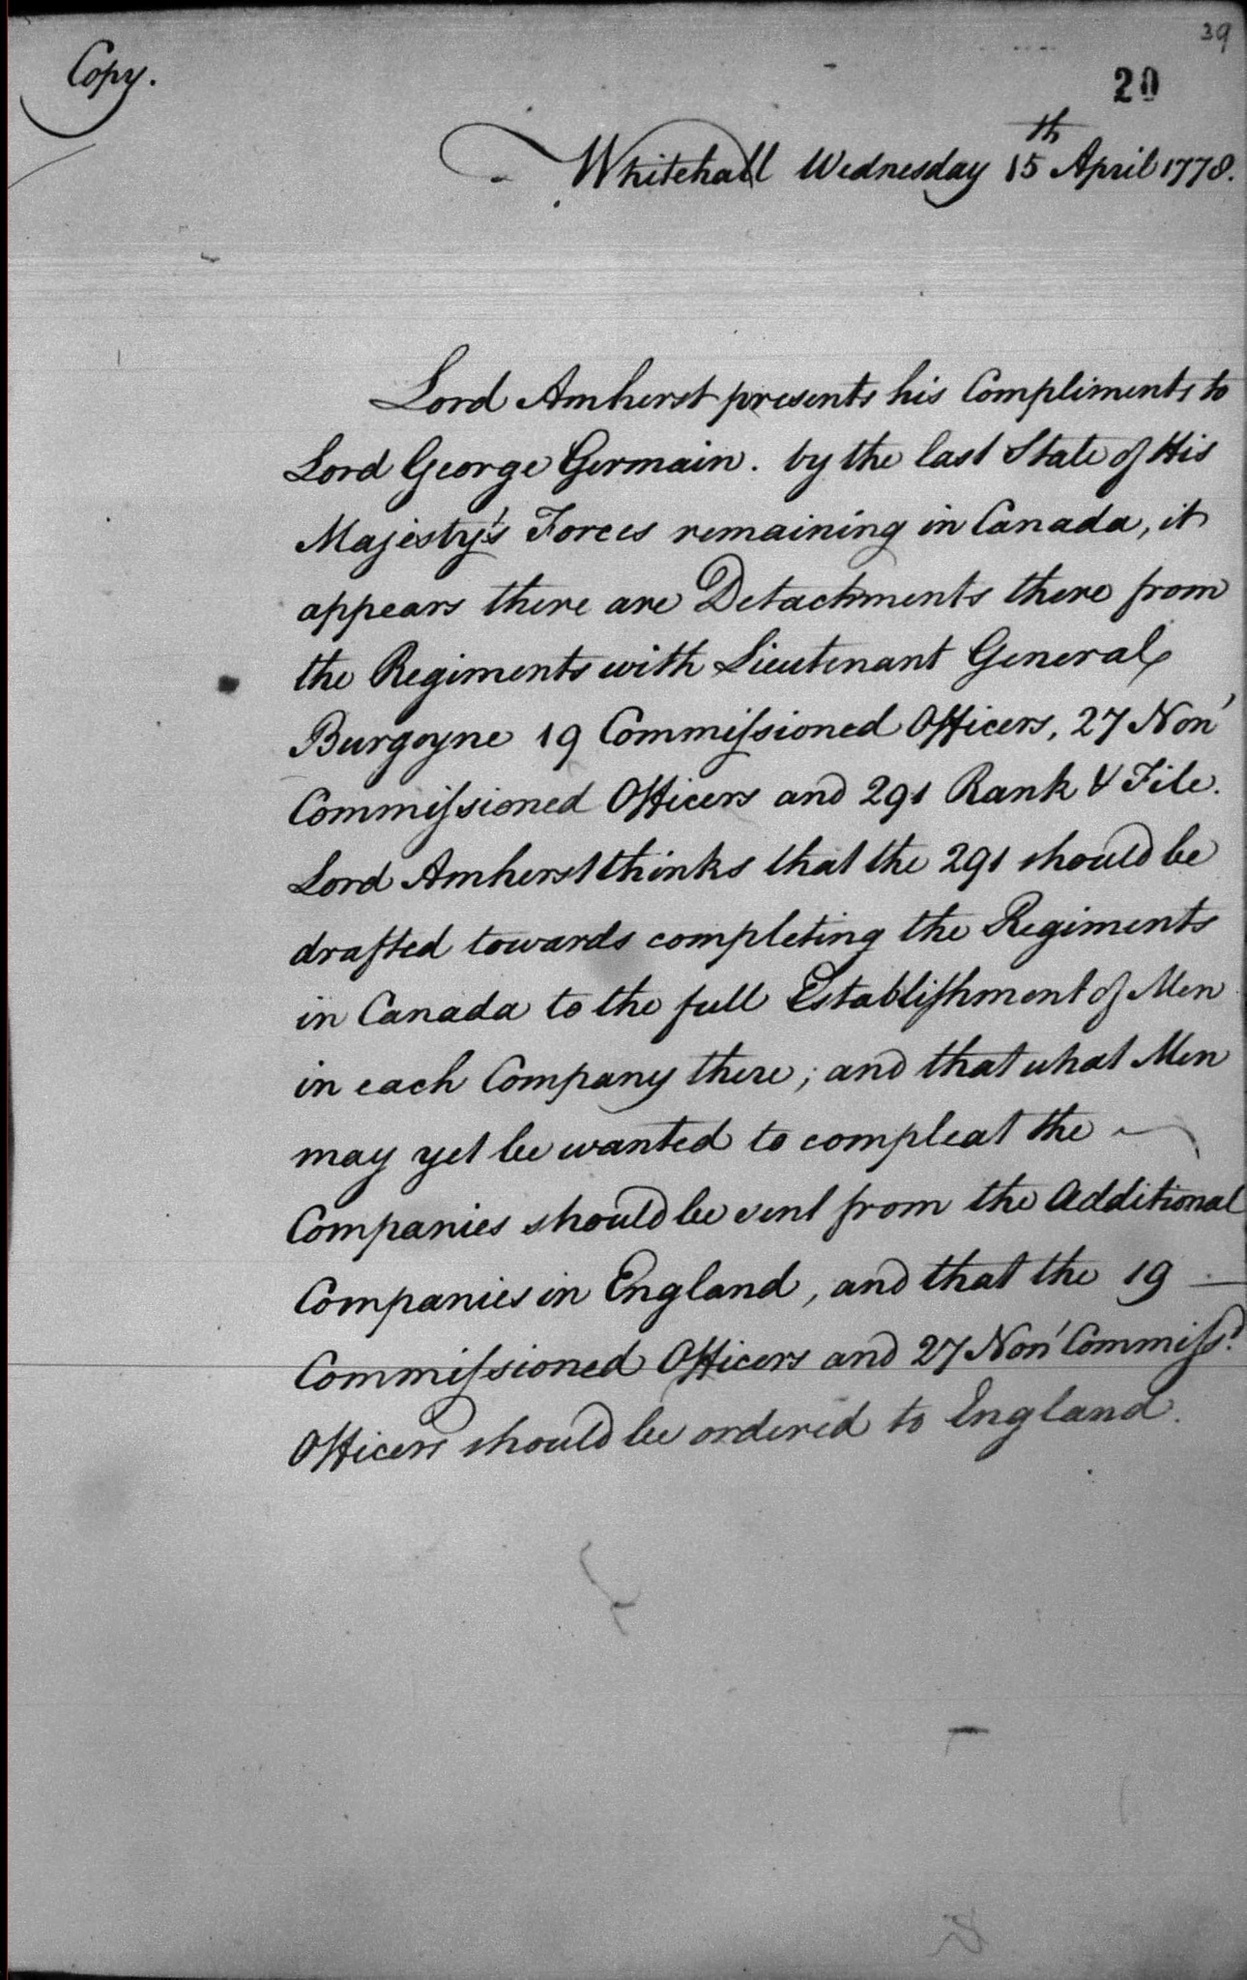 39
Copy.
20
Whitehall Wednesday 15th April 1778.
Lord Amherst presents his Compliments to
Lord George Germain. by the last State of His
Majesty's Forces remaining in Canada, it
appears there are Detachments there from
the Regiments with Lieutenant General
Burgoyne 19 Commiſsioned Officers, 27 Non
Commiſsioned Officers and 291 Rank & File.
Lord Amherst thinks that the 291 should be
drafted towards completing the Regiments
in Canada to the full Establiſhment of Men
in each Company there; and that what Men
may yet be wanted to compleat the
Companies should be sent from the Additional
Companies in England, and that the 19
Commiſsioned Officers and 27 Non Commiſsd.
Officers should be ordered to England.